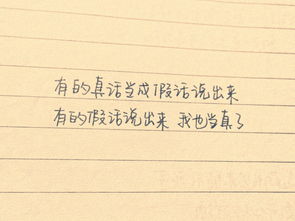 有的真话当成假话说出来
有的假话说出来 我也当真了